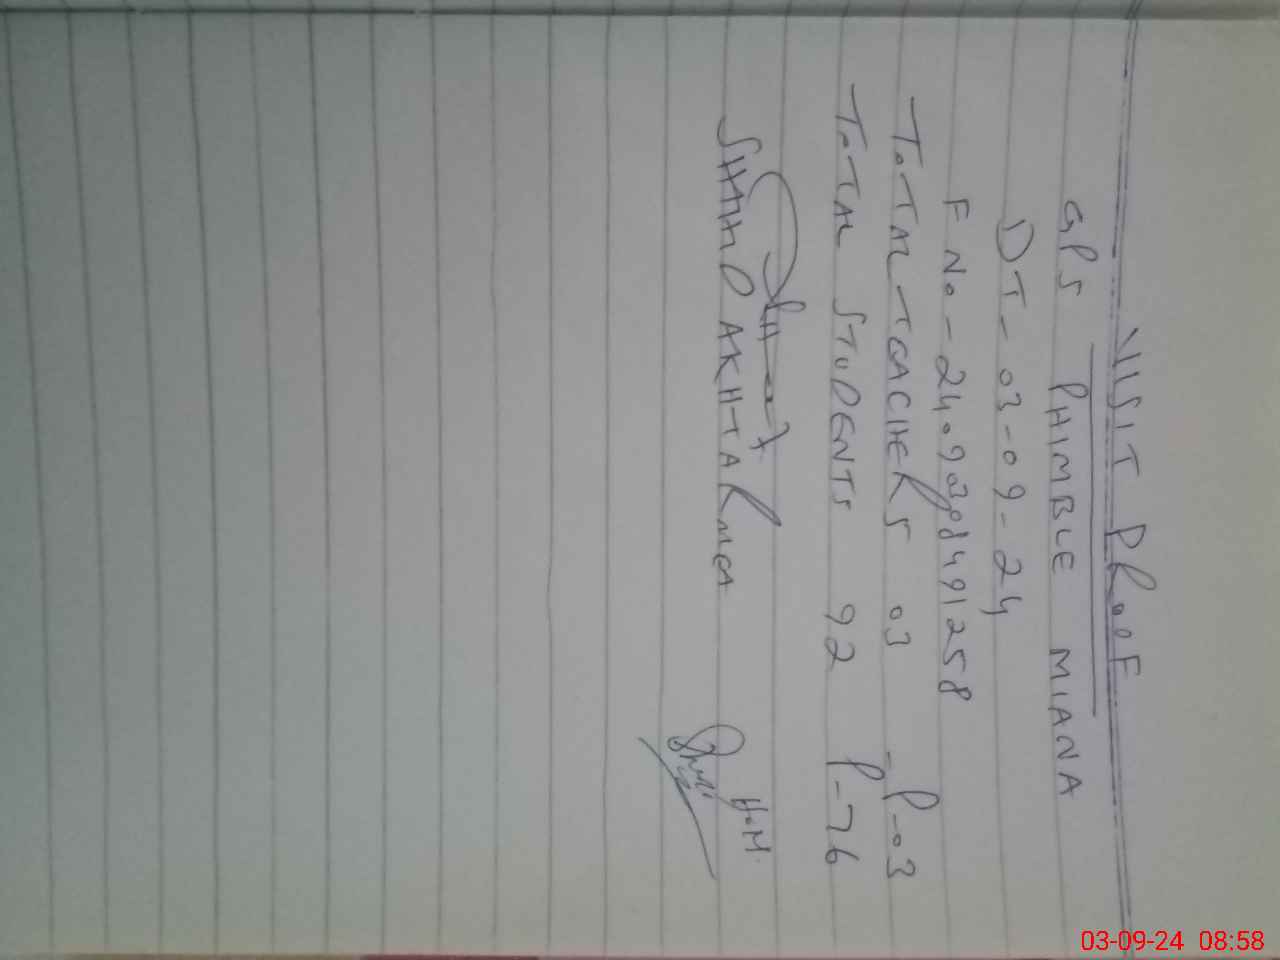 VISIT PROOF
GPS PHIMBLE MIANA
DT-03-09-24
F No-240903
TOTAL TEACHERS 03 - P-03
TOTAL STUDENTS 92 P-76
SHAHD AKHTAR MEA
H.M.
03-09-24 08:58